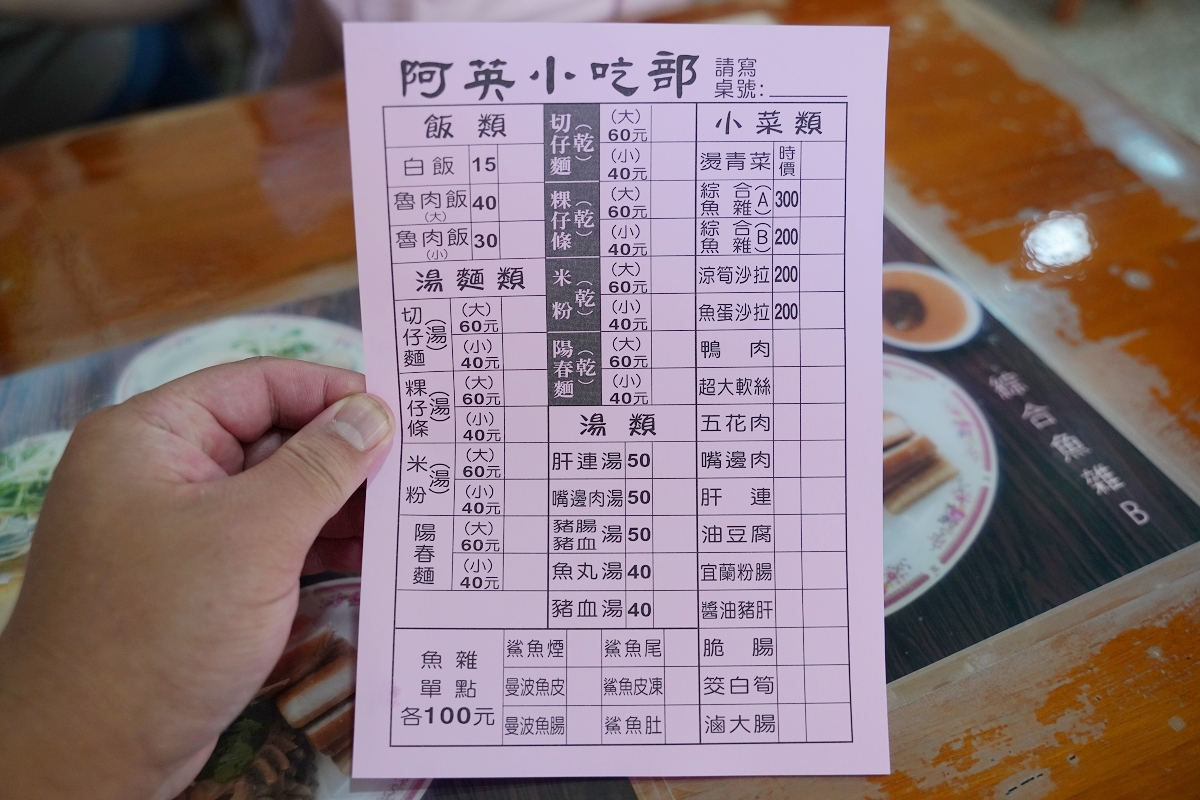 阿英小吃部
請寫
桌號:
飯類
白飯 15
魯肉飯(大) 40
魯肉飯(小) 30
湯麵類
切仔麵(湯) (大)60元
(小)40元
粿仔條(湯) (大)60元
(小)40元
米粉(湯) (大)60元
(小)40元
陽春麵 (大)60元
(小)40元
切仔麵(乾) (大)60元
(小)40元
粿仔條(乾) (大)60元
(小)40元
米粉(乾) (大)60元
(小)40元
陽春麵(乾) (大)60元
(小)40元
湯類
肝連湯 50
嘴邊肉湯 50
豬腸豬血湯 50
魚丸湯 40
豬血湯 40
小菜類
燙青菜 時價
綜合魚雜(A) 300
綜合魚雜(B) 200
涼筍沙拉 200
魚蛋沙拉 200
鴨肉
超大軟絲
五花肉
嘴邊肉
肝連
油豆腐
宜蘭粉腸
醬油豬肝
脆腸
筊白筍
滷大腸
魚雜
單點
各100元
鯊魚煙 鯊魚尾
曼波魚皮 鯊魚皮凍
曼波魚腸 鯊魚肚
綜合魚雜B